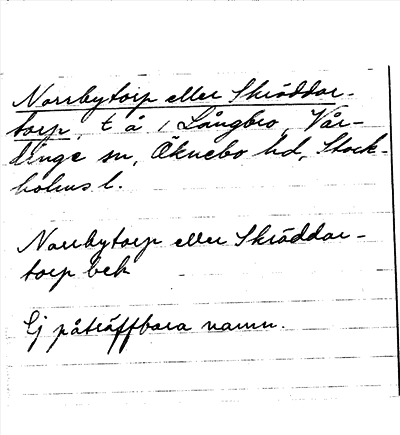 Norrbytorp eller Skräddar-
torp, t å 1 Långbro, Vår-
dinge sn, Öknebo hd, Stock-
holms l.
Norrbytorp eller Skräddar-
torp bek
Ej påträffbara namn.